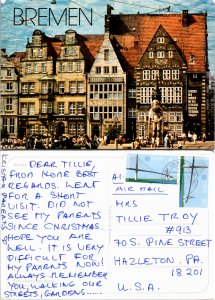 BREMEN
DEAR TILLIE,
FROM ROME BEST
REGARDS. WENT
FOR A SHORT
VISIT. DID NOT
SEE MY PARENTS
SINCE CHRISTMAS.
HOPE YOU ARE
WELL. IT IS VERY
DIFFICULT FOR
MY PARENTS NOW!
ALWAYS REMEMBER
YOU, WALKING OUR
STREETS, GARDENS......
AIR MAIL
MRS
TILLIE TROY
#913
70 S. PINE STREET
HAZLETON, PA.
18201
U.S.A.